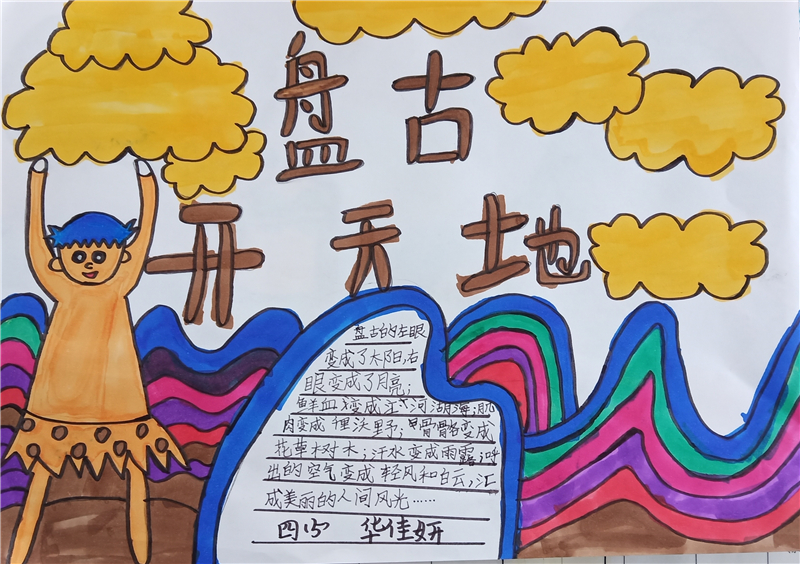 盘古
开天地
盘古的左眼
变成了太阳,右
眼变成了月亮;
鲜血变成江河湖海,肌
肉变成千里沃野;骨骼变成
花草树木;汗水变成雨露;呼
出的空气变成轻风和白云,汇
成美丽的人间风光……
四(5) 华佳妍